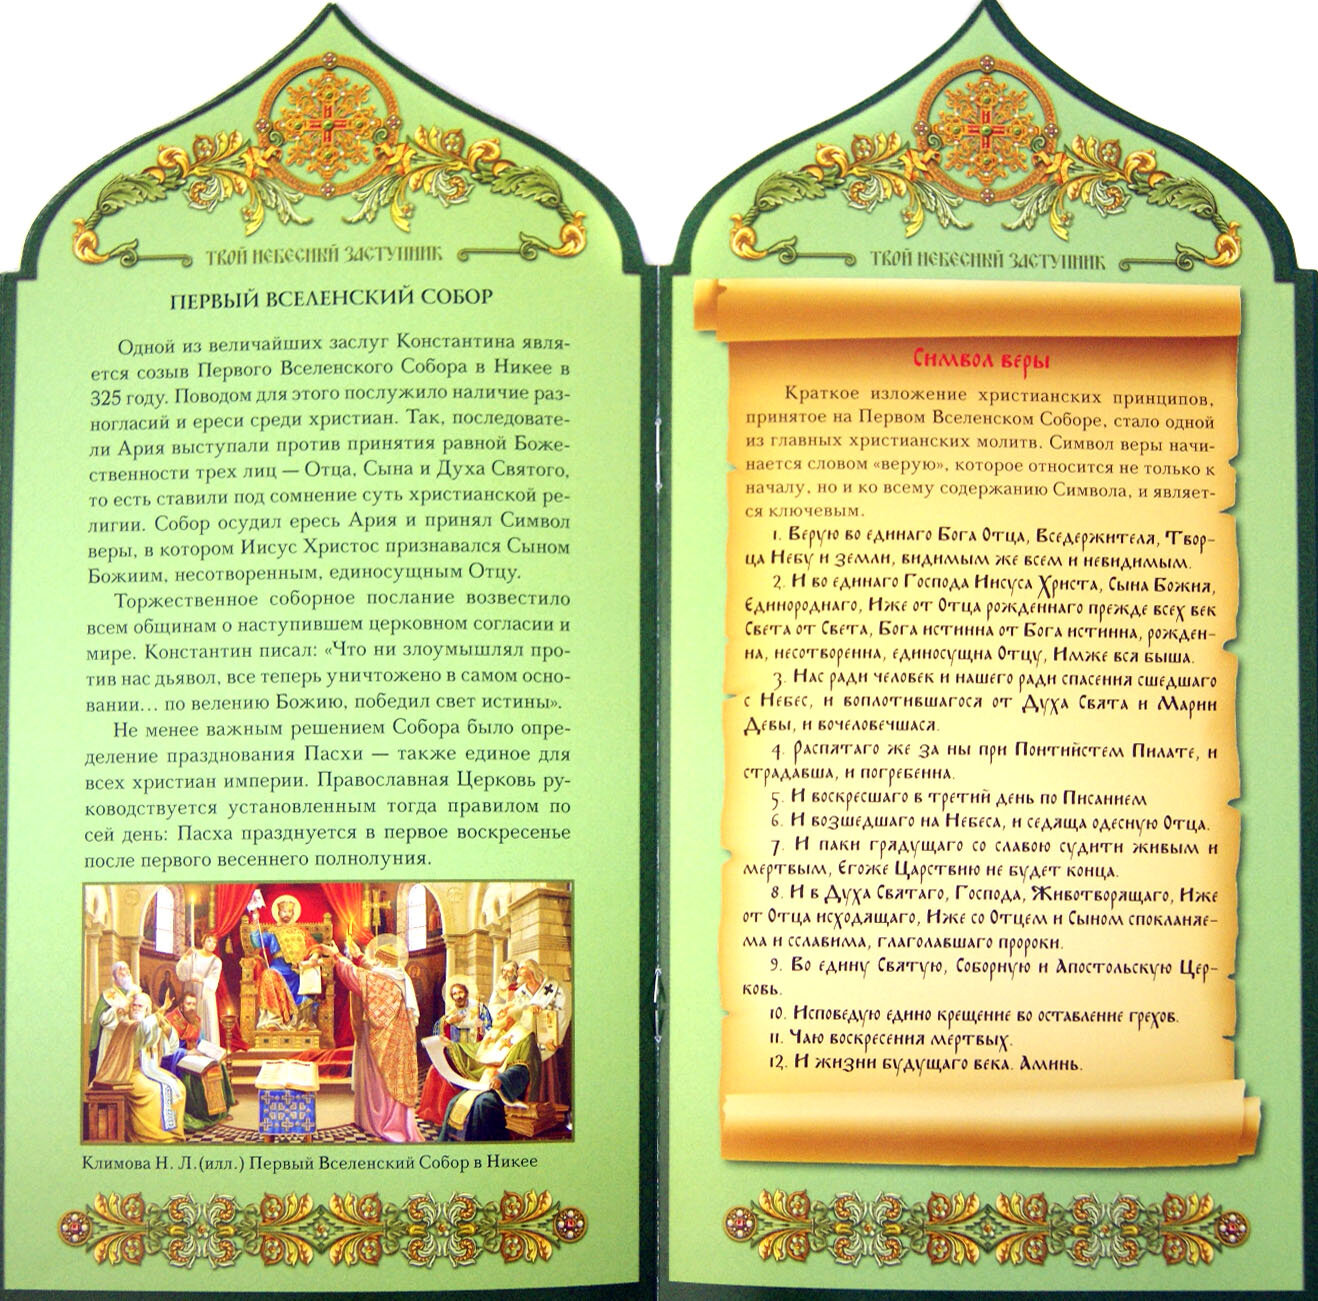 ТВОЙ НЕБЕСНЫЙ ЗАСТУПНИК
ПЕРВЫЙ ВСЕЛЕНСКИЙ СОБОР
Одной из величайших заслуг Константина явля-
ется созыв Первого Вселенского Собора в Никее в
325 году. Поводом для этого послужило наличие раз-
ногласий и ереси среди христиан. Так, последовате-
ли Ария выступали против принятия равной Боже-
ственности трех лиц — Отца, Сына и Духа Святого,
то есть ставили под сомнение суть христианской ре-
лигии. Собор осудил ересь Ария и принял Символ
веры, в котором Иисус Христос признавался Сыном
Божиим, несотворенным, единосущным Отцу.
Торжественное соборное послание возвестило
всем общинам о наступившем церковном согласии и
мире. Константин писал: «Что ни злоумышлял про-
тив нас дьявол, все теперь уничтожено в самом осно-
вании... по велению Божию, победил свет истины».
Не менее важным решением Собора было опре-
деление празднования Пасхи — также единое для
всех христиан империи. Православная Церковь ру-
ководствуется установленным тогда правилом по
сей день: Пасха празднуется в первое воскресенье
после первого весеннего полнолуния.
Климова Н. Л.(илл.) Первый Вселенский Собор в Никее
ТВОЙ НЕБЕСНЫЙ ЗАСТУПНИК
Символ веры
Краткое изложение христианских принципов,
принятое на Первом Вселенском Соборе, стало одной
из главных христианских молитв. Символ веры начи-
нается словом «верую», которое относится не только к
началу, но и ко всему содержанию Символа, и являет-
ся ключевым.
1. Верую во единаго Бога Отца, Вседержителя, Твор-
ца Небу и земли, видимым же всем и невидимым.
2. И во единаго Господа Иисуса Христа, Сына Божия,
Единороднаго, Иже от Отца рожденнаго прежде всех век
Света от Света, Бога истинна от Бога истинна, рожден-
на, несотворенна, единосущна Отцу, Имже вся быша.
3. Нас ради человек и нашего ради спасения сшедшаго
с Небес, и воплотившагося от Духа Свята и Марии
Девы, и вочеловечшася.
4. Распятаго же за ны при Понтийстем Пилате, и
страдавша, и погребенна.
5. И воскресшаго в третий день по Писанием
6. И возшедшаго на Небеса, и седяща одесную Отца.
7. И паки грядущаго со славою судити живым и
мертвым, Егоже Царствию не будет конца.
8. И в Духа Святаго, Господа, Животворящаго, Иже
от Отца исходящаго, Иже со Отцем и Сыном спокланяе-
ма и сславима, глаголавшаго пророки.
9. Во едину Святую, Соборную и Апостольскую Цер-
ковь.
10. Исповедую едино крещение во оставление грехов.
11. Чаю воскресения мертвых.
12. И жизни будущаго века. Аминь.